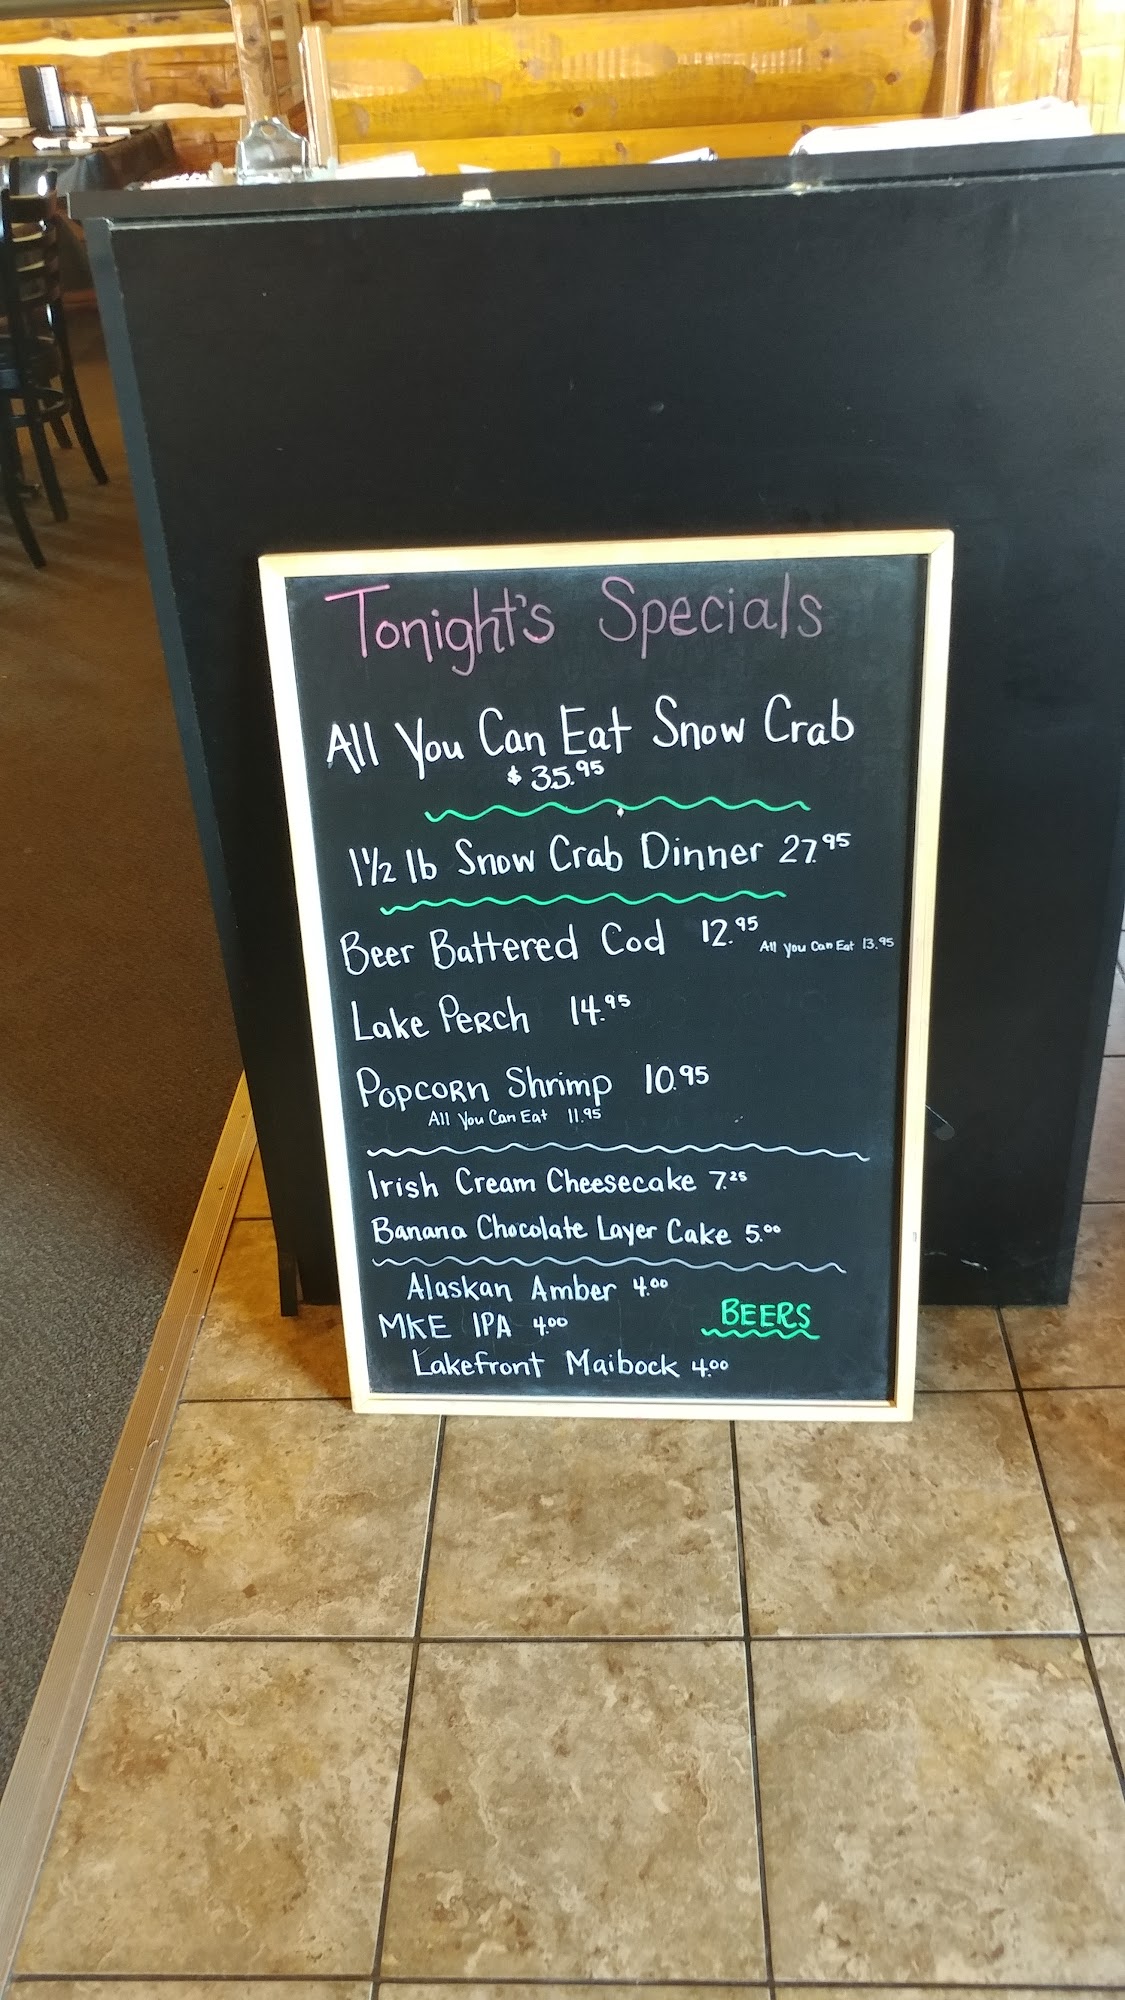 Tonight's Specials
All You Can Eat Snow Crab
$35.95
1½ lb Snow Crab Dinner 27.95
Beer Battered Cod 12.95 All You Can Eat 13.95
Lake Perch 14.95
Popcorn Shrimp 10.95
All You Can Eat 11.95
Irish Cream Cheesecake 7.25
Banana Chocolate Layer Cake 5.00
Alaskan Amber 4.00
BEERS
MKE IPA 4.00
Lakefront Maibock 4.00